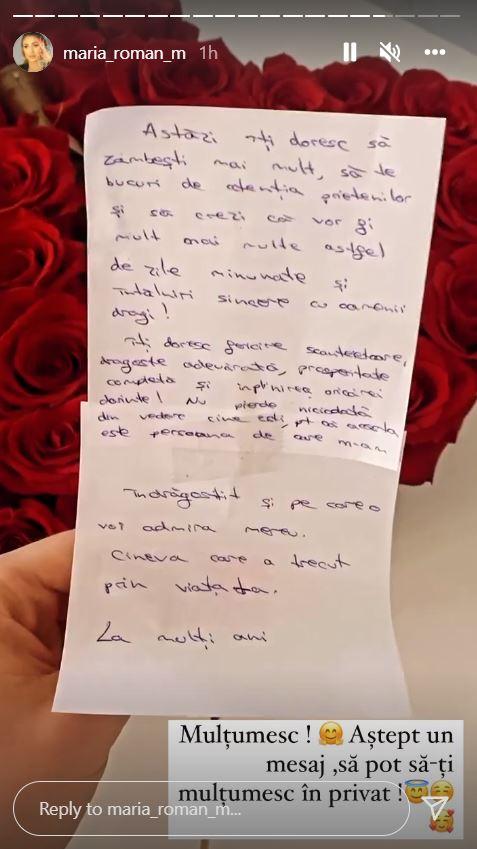 maria_roman_m 1h
Astăzi îți doresc să
zâmbești mai mult, să te
bucuri de atenția prietenilor
și să crezi că vor fi
mult mai multe astfel
de zile minunate și
întâlniri sincere cu oamenii
dragi!
Îți doresc fericire scanteetoare,
dragoste adevărată, prosperitate
completă și inplinirea oricărei
dorințe! Nu pierde niciodată
din vedere cine ești, pt că aceasta
este persoana de care m-am
îndrăgostit și pe care o
voi admira mereu.
Cineva care a trecut
prin viața ta.
La mulți ani
Mulțumesc ! 🤗 Aștept un
mesaj ,să pot să-ți
mulțumesc în privat !😇🥰
🥰
Reply to maria_roman_m...